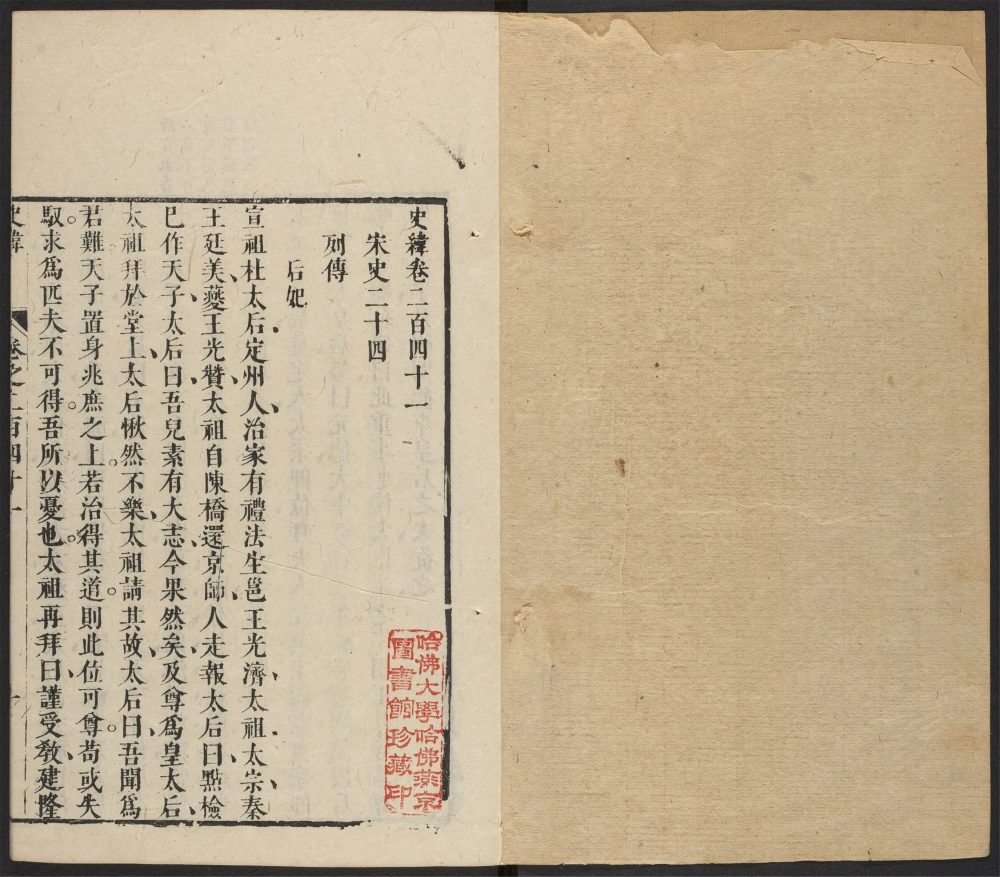 史緯卷二百四十一
宋史二十四
列傳
后妃
宣祖杜太后定州人治家有禮法生邕王光濟太祖太宗秦
王廷美夔王光贊太祖自陳橋還京師人走報太后曰點檢
已作天子太后曰吾兒素有大志今果然矣及尊爲皇太后
太祖拜於堂上太后愀然不樂太祖請其故太后曰吾聞爲
君難天子置身兆庶之上若治得其道則此位可尊苟或失
馭求爲匹夫不可得吾所以憂也太祖再拜曰謹受敎建隆
史緯
卷之二百四十一
哈佛大學哈佛燕京
圖書館珍藏印